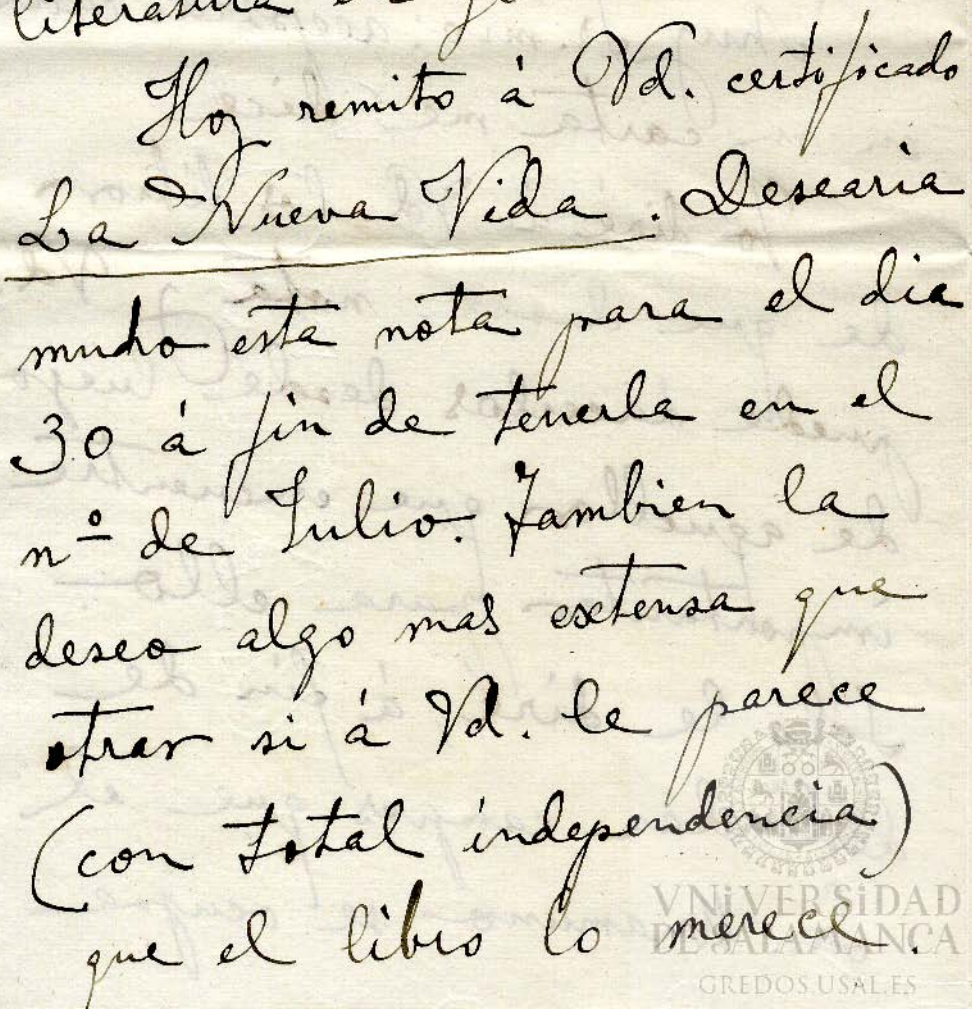 literatura
Hoy remito á Vd. certificado
La Nueva Vida. Desearia
mucho esta nota para el dia
30 á fin de tenerla en el
nº de Julio. Tambien la
deseo algo mas extensa que
otras si á Vd. le parece
(con total independencia)
que el libro lo merece.
VNiVERSiDAD
DE SALAMANCA
GREDOS.USAL.ES